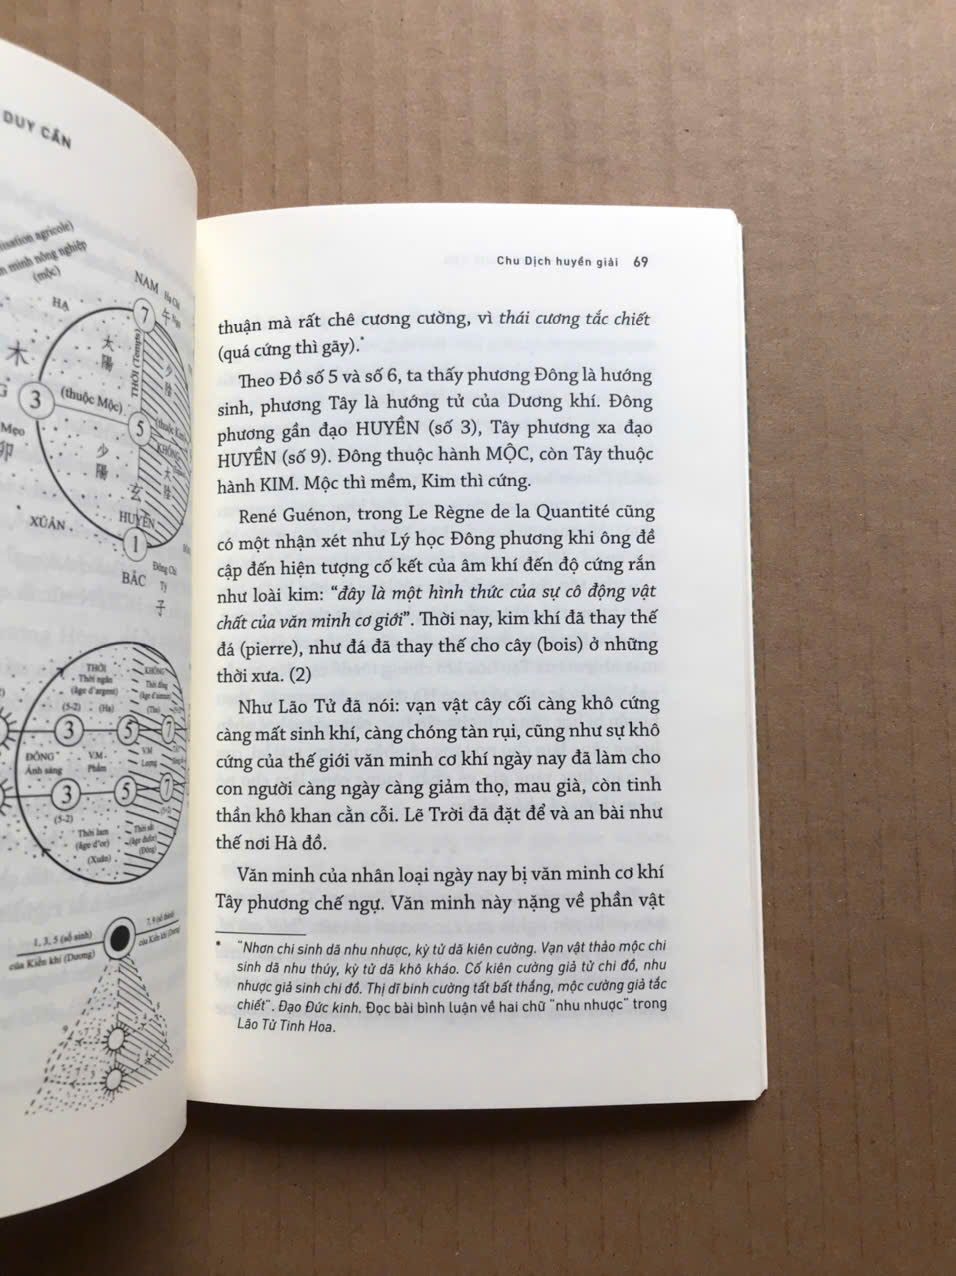 DUY CẦN
agricole)
minh nông nghiệp
(mộc)
HẠ
NAM
Hạ Chí
午 Ngọ
7
木
太
陽
THỜI (Temps)
少
陰
3
(thuộc Mộc)
5
Mẹo
卯
少
陽
太
陰
玄
HUYỀN
XUÂN
1
BẮC
Đông Chí
Tý
子
THỜI
Thời ngân
(âge d'argent)
(5-2) (Hạ)
KHÔNG
Thời đồng
(Thu)
3
5
7
ĐÔNG
Ánh sáng
V.M
Phẩm
V.M
Lượng
3
5
7
(5-2)
Thời lam
(âge d'or)
(Xuân)
Thời sắt
(Đông)
1, 3, 5 (số sinh)
của Kiền khí (Dương)
7, 9 (số thành)
của Kiền khí (Dương)
Chu Dịch huyền giải 69
thuận mà rất chê cương cường, vì thái cương tắc chiết
(quá cứng thì gãy).*
Theo Đồ số 5 và số 6, ta thấy phương Đông là hướng
sinh, phương Tây là hướng tử của Dương khí. Đông
phương gần đạo HUYỀN (số 3), Tây phương xa đạo
HUYỀN (số 9). Đông thuộc hành MỘC, còn Tây thuộc
hành KIM. Mộc thì mềm, Kim thì cứng.
René Guénon, trong Le Règne de la Quantité cũng
có một nhận xét như Lý học Đông phương khi ông đề
cập đến hiện tượng cố kết của âm khí đến độ cứng rắn
như loài kim: “đây là một hình thức của sự cô động vật
chất của văn minh cơ giới”. Thời nay, kim khí đã thay thế
đá (pierre), như đá đã thay thế cho cây (bois) ở những
thời xưa. (2)
Như Lão Tử đã nói: vạn vật cây cối càng khô cứng
càng mất sinh khí, càng chóng tàn rụi, cũng như sự khô
cứng của thế giới văn minh cơ khí ngày nay đã làm cho
con người càng ngày càng giảm thọ, mau già, còn tinh
thần khô khan cằn cỗi. Lẽ Trời đã đặt để và an bài như
thế nơi Hà đồ.
Văn minh của nhân loại ngày nay bị văn minh cơ khí
Tây phương chế ngự. Văn minh này nặng về phần vật
* “Nhơn chi sinh dã nhu nhược, kỳ tử dã kiên cường. Vạn vật thảo mộc chi
sinh dã nhu thúy, kỳ tử dã khô khảo. Cố kiên cường giả tử chi đồ, nhu
nhược giả sinh chi đồ. Thị dĩ binh cường tất bất thắng, mộc cường giả tắc
chiết”. Đạo Đức kinh. Đọc bài bình luận về hai chữ “nhu nhược” trong
Lão Tử Tinh Hoa.